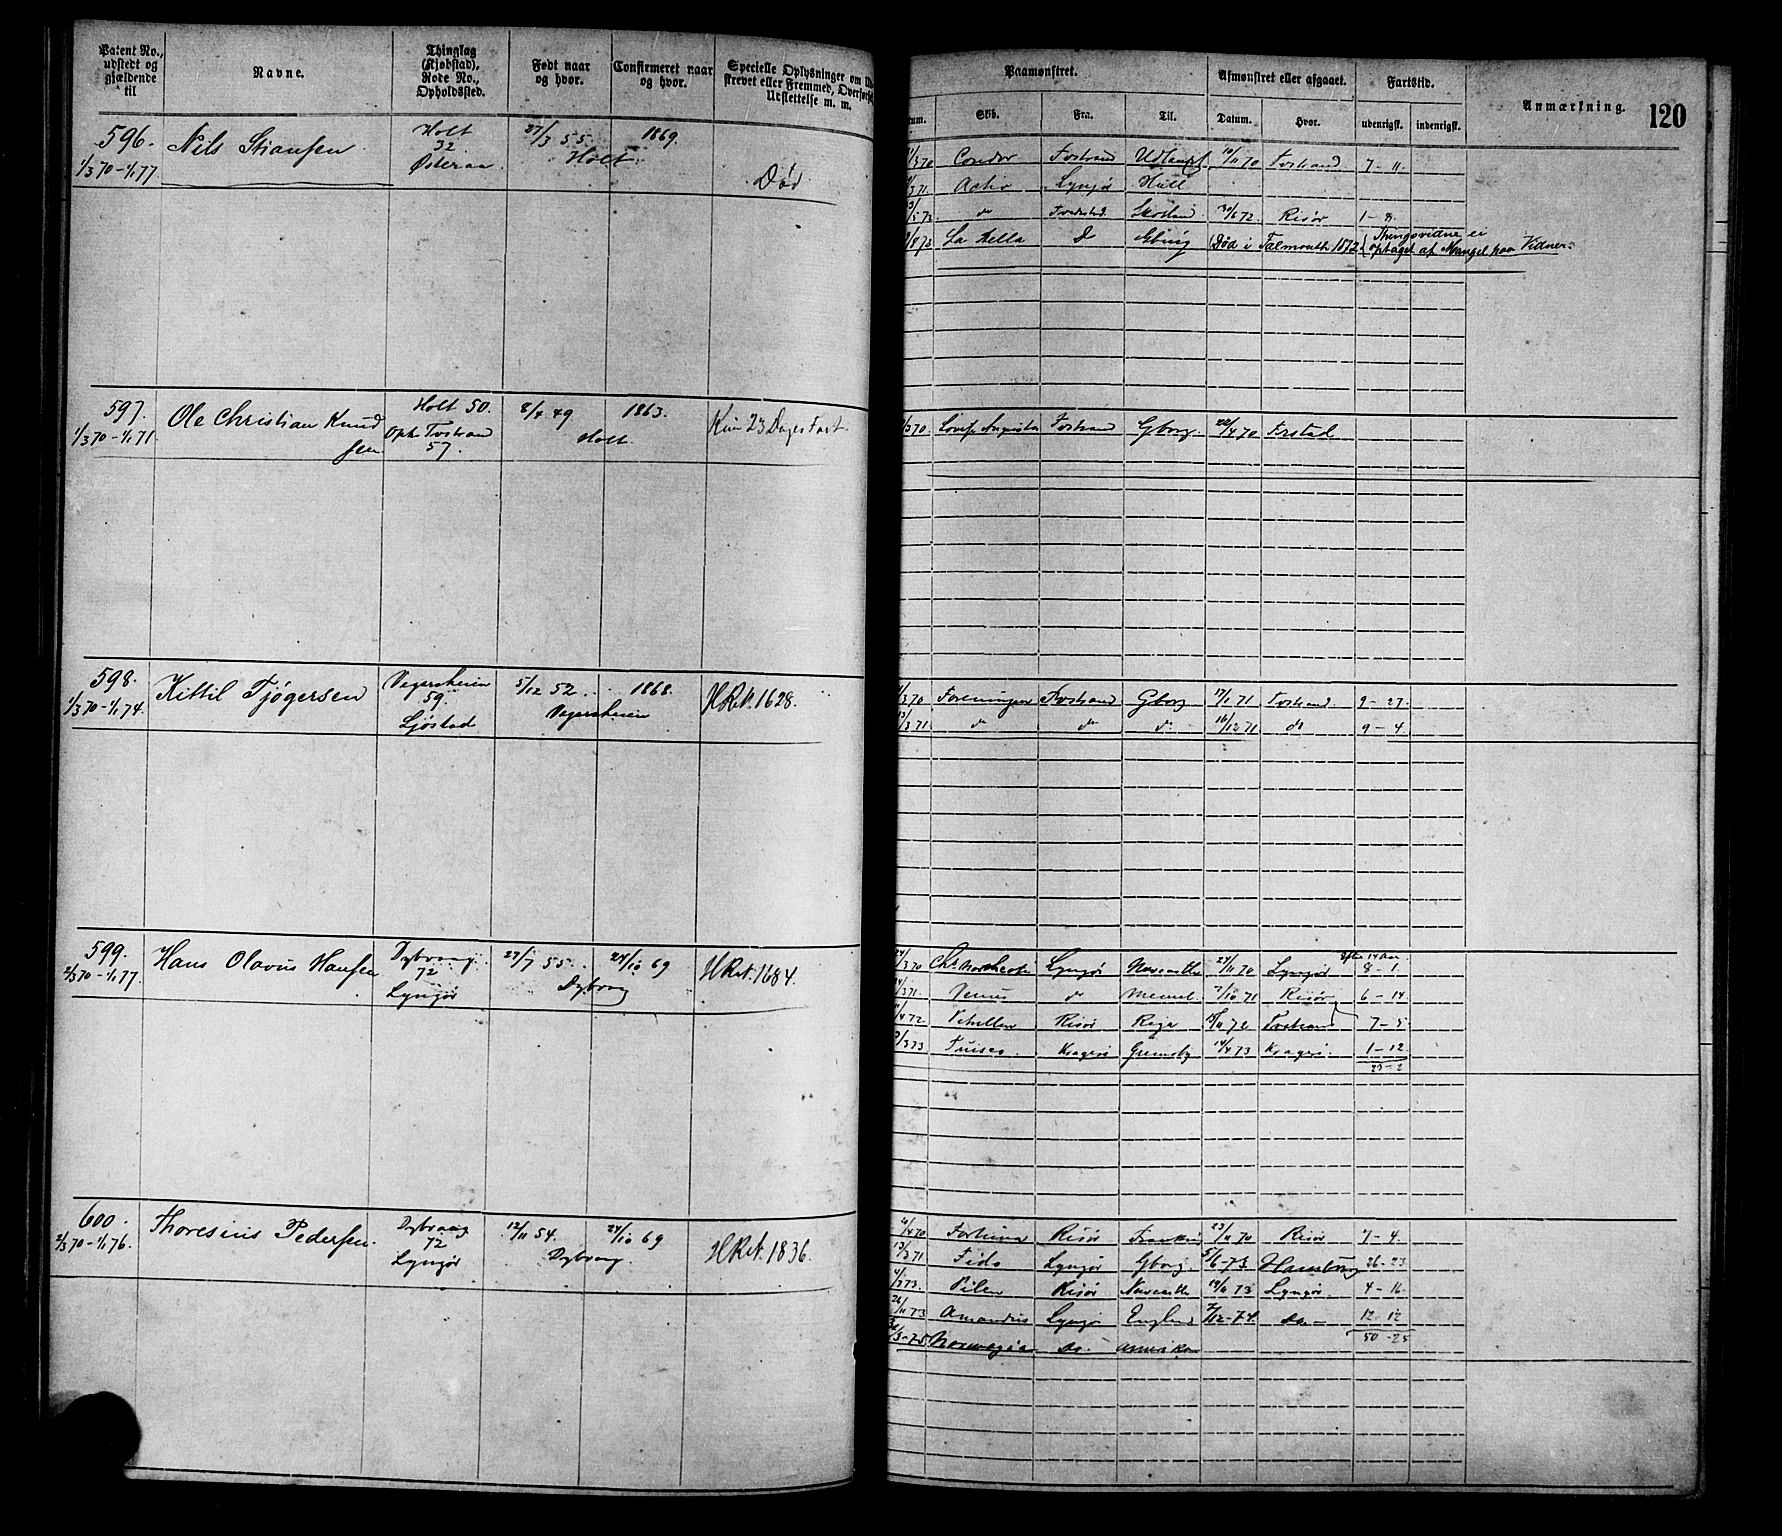 Patent No., udstedt og gjældende til | Navne. | Thinglag (Kjøbstad), Rode No., Opholdssted. | Født naar og hvor. | Confirmeret naar og hvor. | Specielle Oplysninger om
strevet eller Fremmed, Overført, Udslettelse m. m.
Paamønstret. | Afmønstret eller afgaaet. | Fartstid. | Anmærkning. 120
Skib. | Fra. | Til. | Datum. | Hvor. | udenrigsk. | indenrigsk.
596. Nils Stiansen Holt 27/3 55. 1869.
1/3 70 – 1/1 77 32 Holt
Østeraa Død
3 70 Condor Tvstrand Udlandet 10/11 70 Tvstrand 7 – 11.
3 71. Activ Lyngør Hull
5 72 do Fredrikstad. Skotland 30/6 72. Risør 1 – 8.
8 72 La Bella D (Død i Falmouth 1872 Thingsvidne ei
optaget af Mangel paa Vidner.
597. Ole Christian Knud Holt 50. 8/4 49 1863. Kun 23 Dages Fart
1/3 70 – 1/1 71. sen Oph. Tvstrand Holt.
57.
3 70. Augusta Tvstrand Gborg. 22/4 70
598. Kittil Tjøgersen Vegarsheien 5/12 52 1868. HRul. 1628.
1/3 70 – 1/1 74. 59. Vegarsheien
Ljøstad
3 70 Foreningen Tvstrand Gborg 17/1 71 Tvstrand. 9 – 27.
13/3 71. do do do 16/12 71 do 9 – 4.
599. Hans Olavus Hansen Dybvaag 27/7 55. 24/10 69 HRul. 1684.
2/3 70 – 1/1 77 72 Dybvaag
Lyngør
24/3 70 Lyngør Newcastle 27/11 70 Lyngør 8 – 1
3 71. Venus do Memel. 7/10 71 Risør 6 – 14
4 72 Risør Riga 11 72 Tvstrand 7 – 5
3 73 Kragerø Grimsby 14/4 73 Kragerø. 1 – 12
23 – 2
600. Thoresius Pedersen. Dybvaag 12/11 54. 24/10 69 HRul. 1836.
2/3 70 – 1/1 76. 72 Dybvaag
Lyngør
4 70 Fortuna Risør 23/11 70 Risør 7 – 4.
13/3 71 Fido Lyngør Gborg. 5/6 - 73 Hamburg 26 – 23
3 73. Pilen Risør Newcastle 19/11 73 Lyngør. 4 – 16
26/11 73 Amandus Lyngør England 7/12 - 74. Do. 12 – 12
50 – 25
3 - 75 Norwegia Do. Amerika